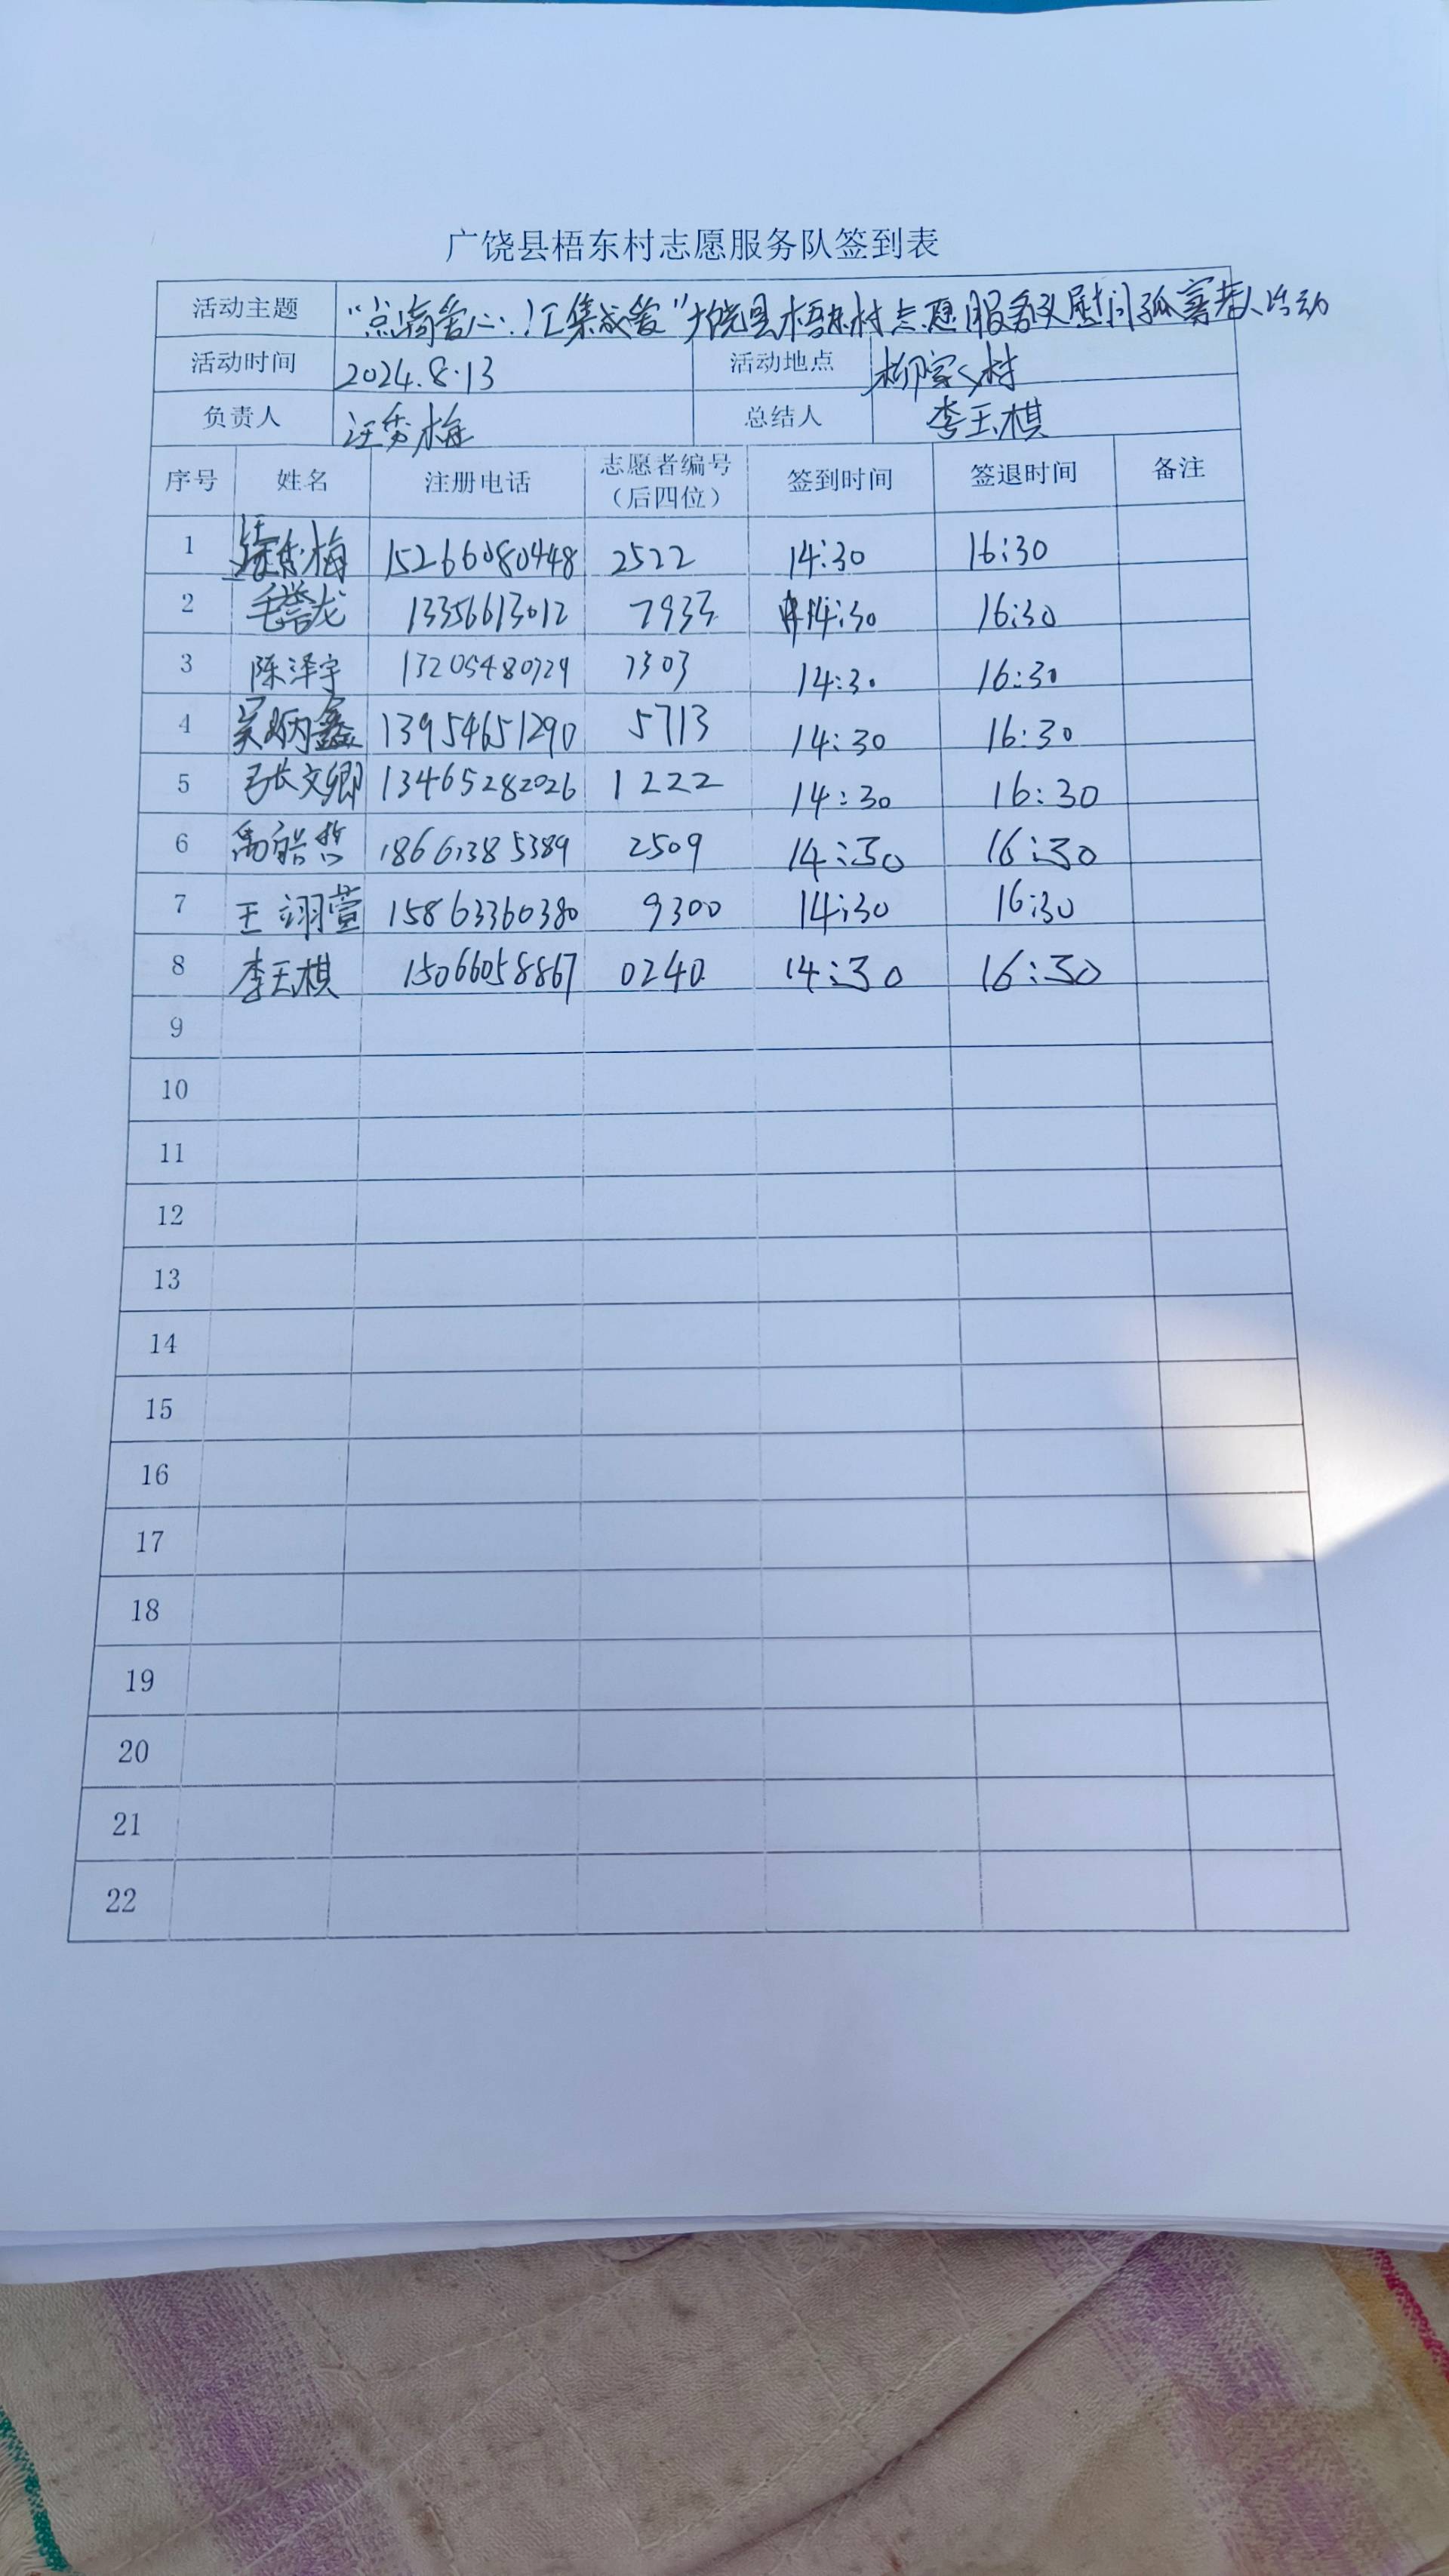 广饶县梧东村志愿服务队签到表
活动主题 “点滴爱心·汇集成爱”广饶县梧东村志愿服务队慰问孤寡老人活动
活动时间 2024.8.13 活动地点 柳家村
负责人 汪秀梅 总结人 李玉棋
序号 姓名 注册电话 志愿者编号（后四位） 签到时间 签退时间 备注
1 秀梅 15266080448 2522 14:30 16:30
2 毛誉龙 13356613012 7933 14:30 16:30
3 陈泽宇 13205480729 7303 14:30 16:30
4 吴炳鑫 13954651290 5713 14:30 16:30
5 张文卿 13465282026 1222 14:30 16:30
6 禹皓哲 18661385389 2509 14:30 16:30
7 王翊萱 15863360380 9300 14:30 16:30
8 李玉棋 15066058867 0240 14:30 16:30
9
10
11
12
13
14
15
16
17
18
19
20
21
22